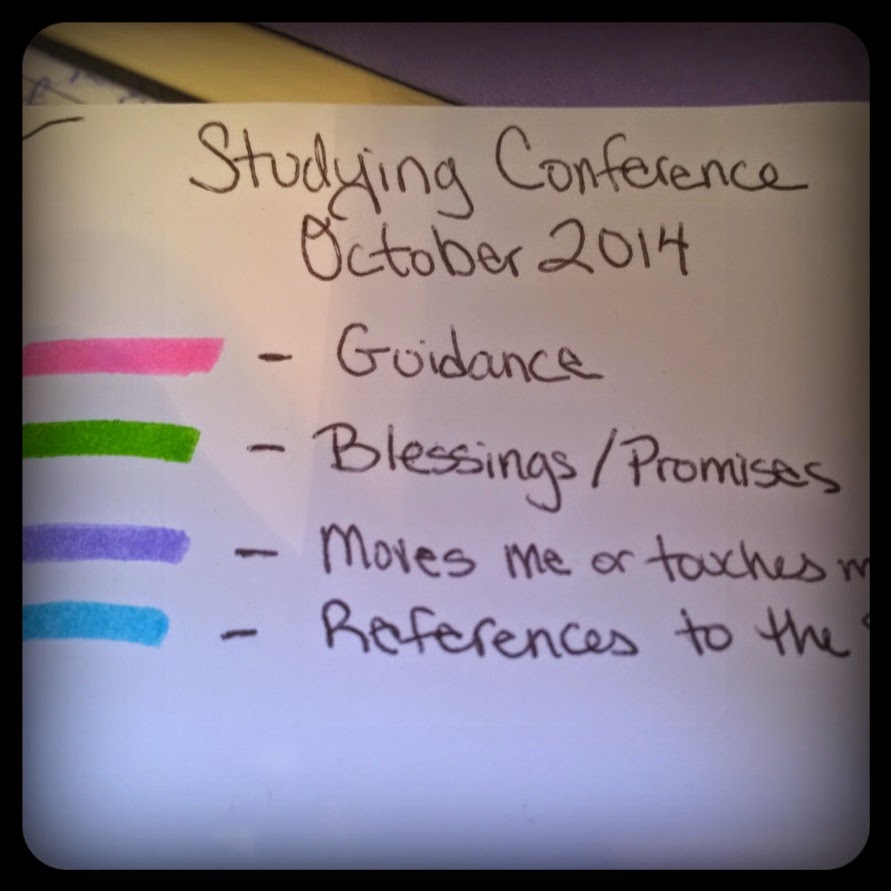 Studying Conference
October 2014
- Guidance
- Blessings/Promises
- Moves me or touches m
- References to the